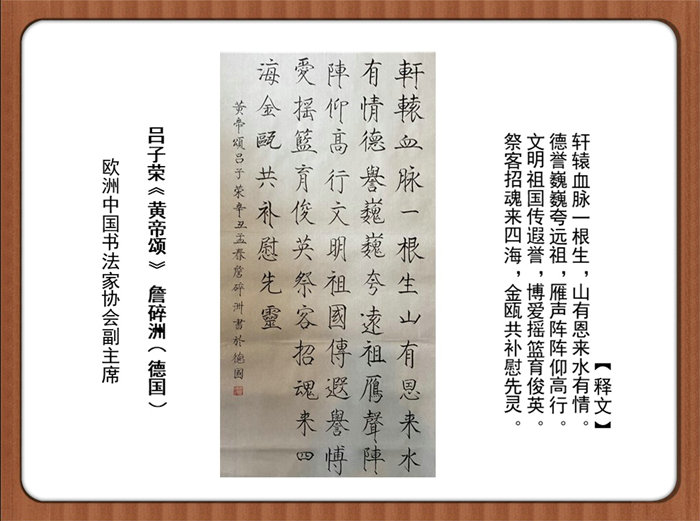 【释文】
轩辕血脉一根生，山有恩来水有情。
德誉巍巍夸远祖，雁声阵阵仰高行。
文明祖国传遐誉，博爱摇篮育俊英。
祭客招魂来四海，金瓯共补慰先灵。
軒轅血脉一根生山有恩来水
有情德譽巍巍夸遠祖鴈聲陣
陣仰高行文明祖國傳遐譽博
愛摇籃育俊英祭客招魂来四
海金甌共补慰先靈
黄帝頌吕子榮辛丑孟春詹碎洲書於德國
吕子荣《黄帝颂》 詹碎洲（德国）
欧洲中国书法家协会副主席